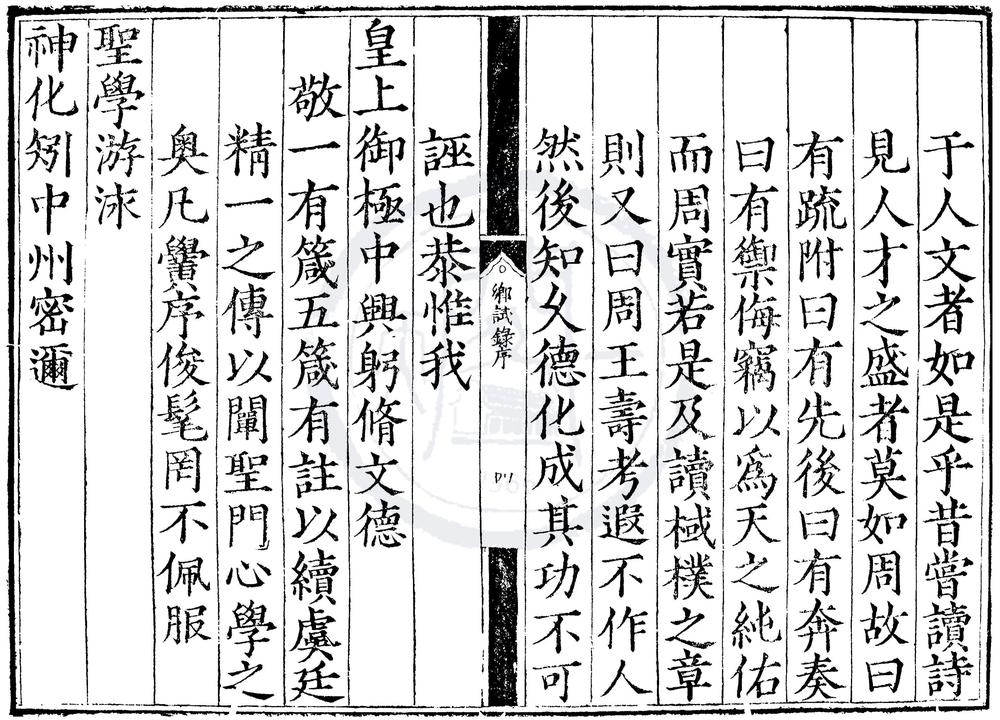 于人文者如是乎昔嘗讀詩
見人才之盛者莫如周故曰
有疏附曰有先後曰有奔奏
曰有禦侮竊以爲天之純佑
而周實若是及讀棫樸之章
則又曰周王壽考遐不作人
然後知久德化成其功不可
鄉試錄序
四
誣也恭惟我
皇上御極中興躬脩文德
敬一有箴五箴有註以續虞廷
精一之傳以闡聖門心學之
奥凡黌序俊髦罔不佩服
聖學游泳
神化矧中州密邇